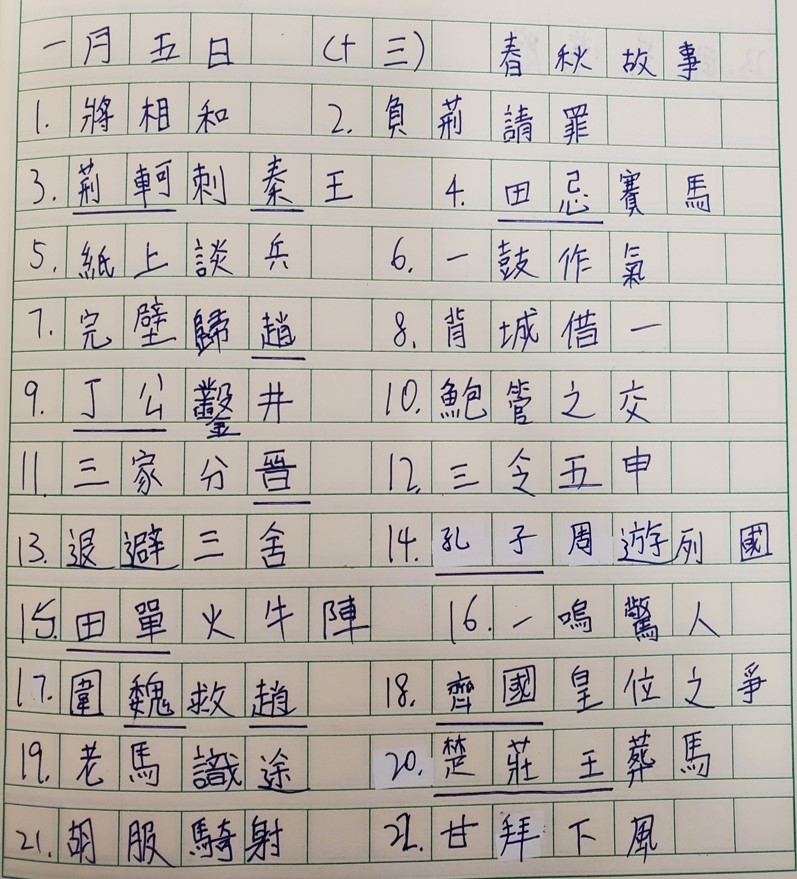 一月五日 (十三) 春秋故事
1. 將相和 2. 負荊請罪
3. 荊軻刺秦王 4. 田忌賽馬
5. 紙上談兵 6. 一鼓作氣
7. 完壁歸趙 8. 背城借一
9. 丁公鑿井 10. 鮑管之交
11. 三家分晉 12. 三令五申
13. 退避三舍 14. 孔子周遊列國
15. 田單火牛陣 16. 一鳴驚人
17. 圍魏救趙 18. 齊國皇位之爭
19. 老馬識途 20. 楚莊王葬馬
21. 胡服騎射 22. 甘拜下風